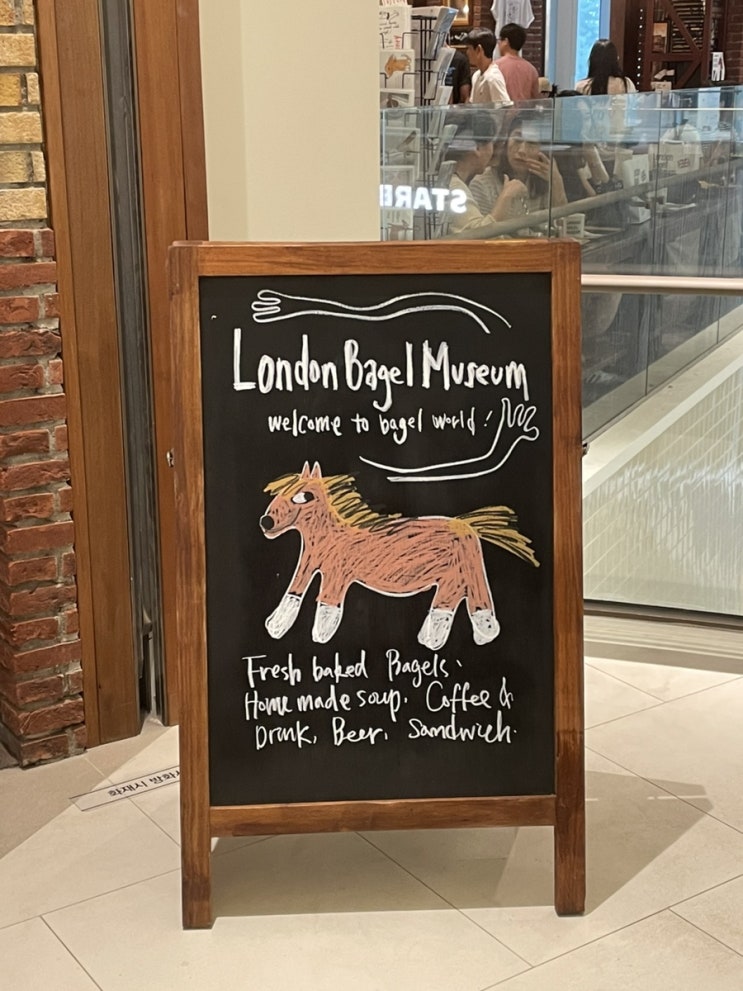 STARB
London Bagel Museum
welcome to bagel world!
Fresh baked Bagels.
Home made soup. Coffee &
Drink, Beer, Sandwich.
화재시 방화셔